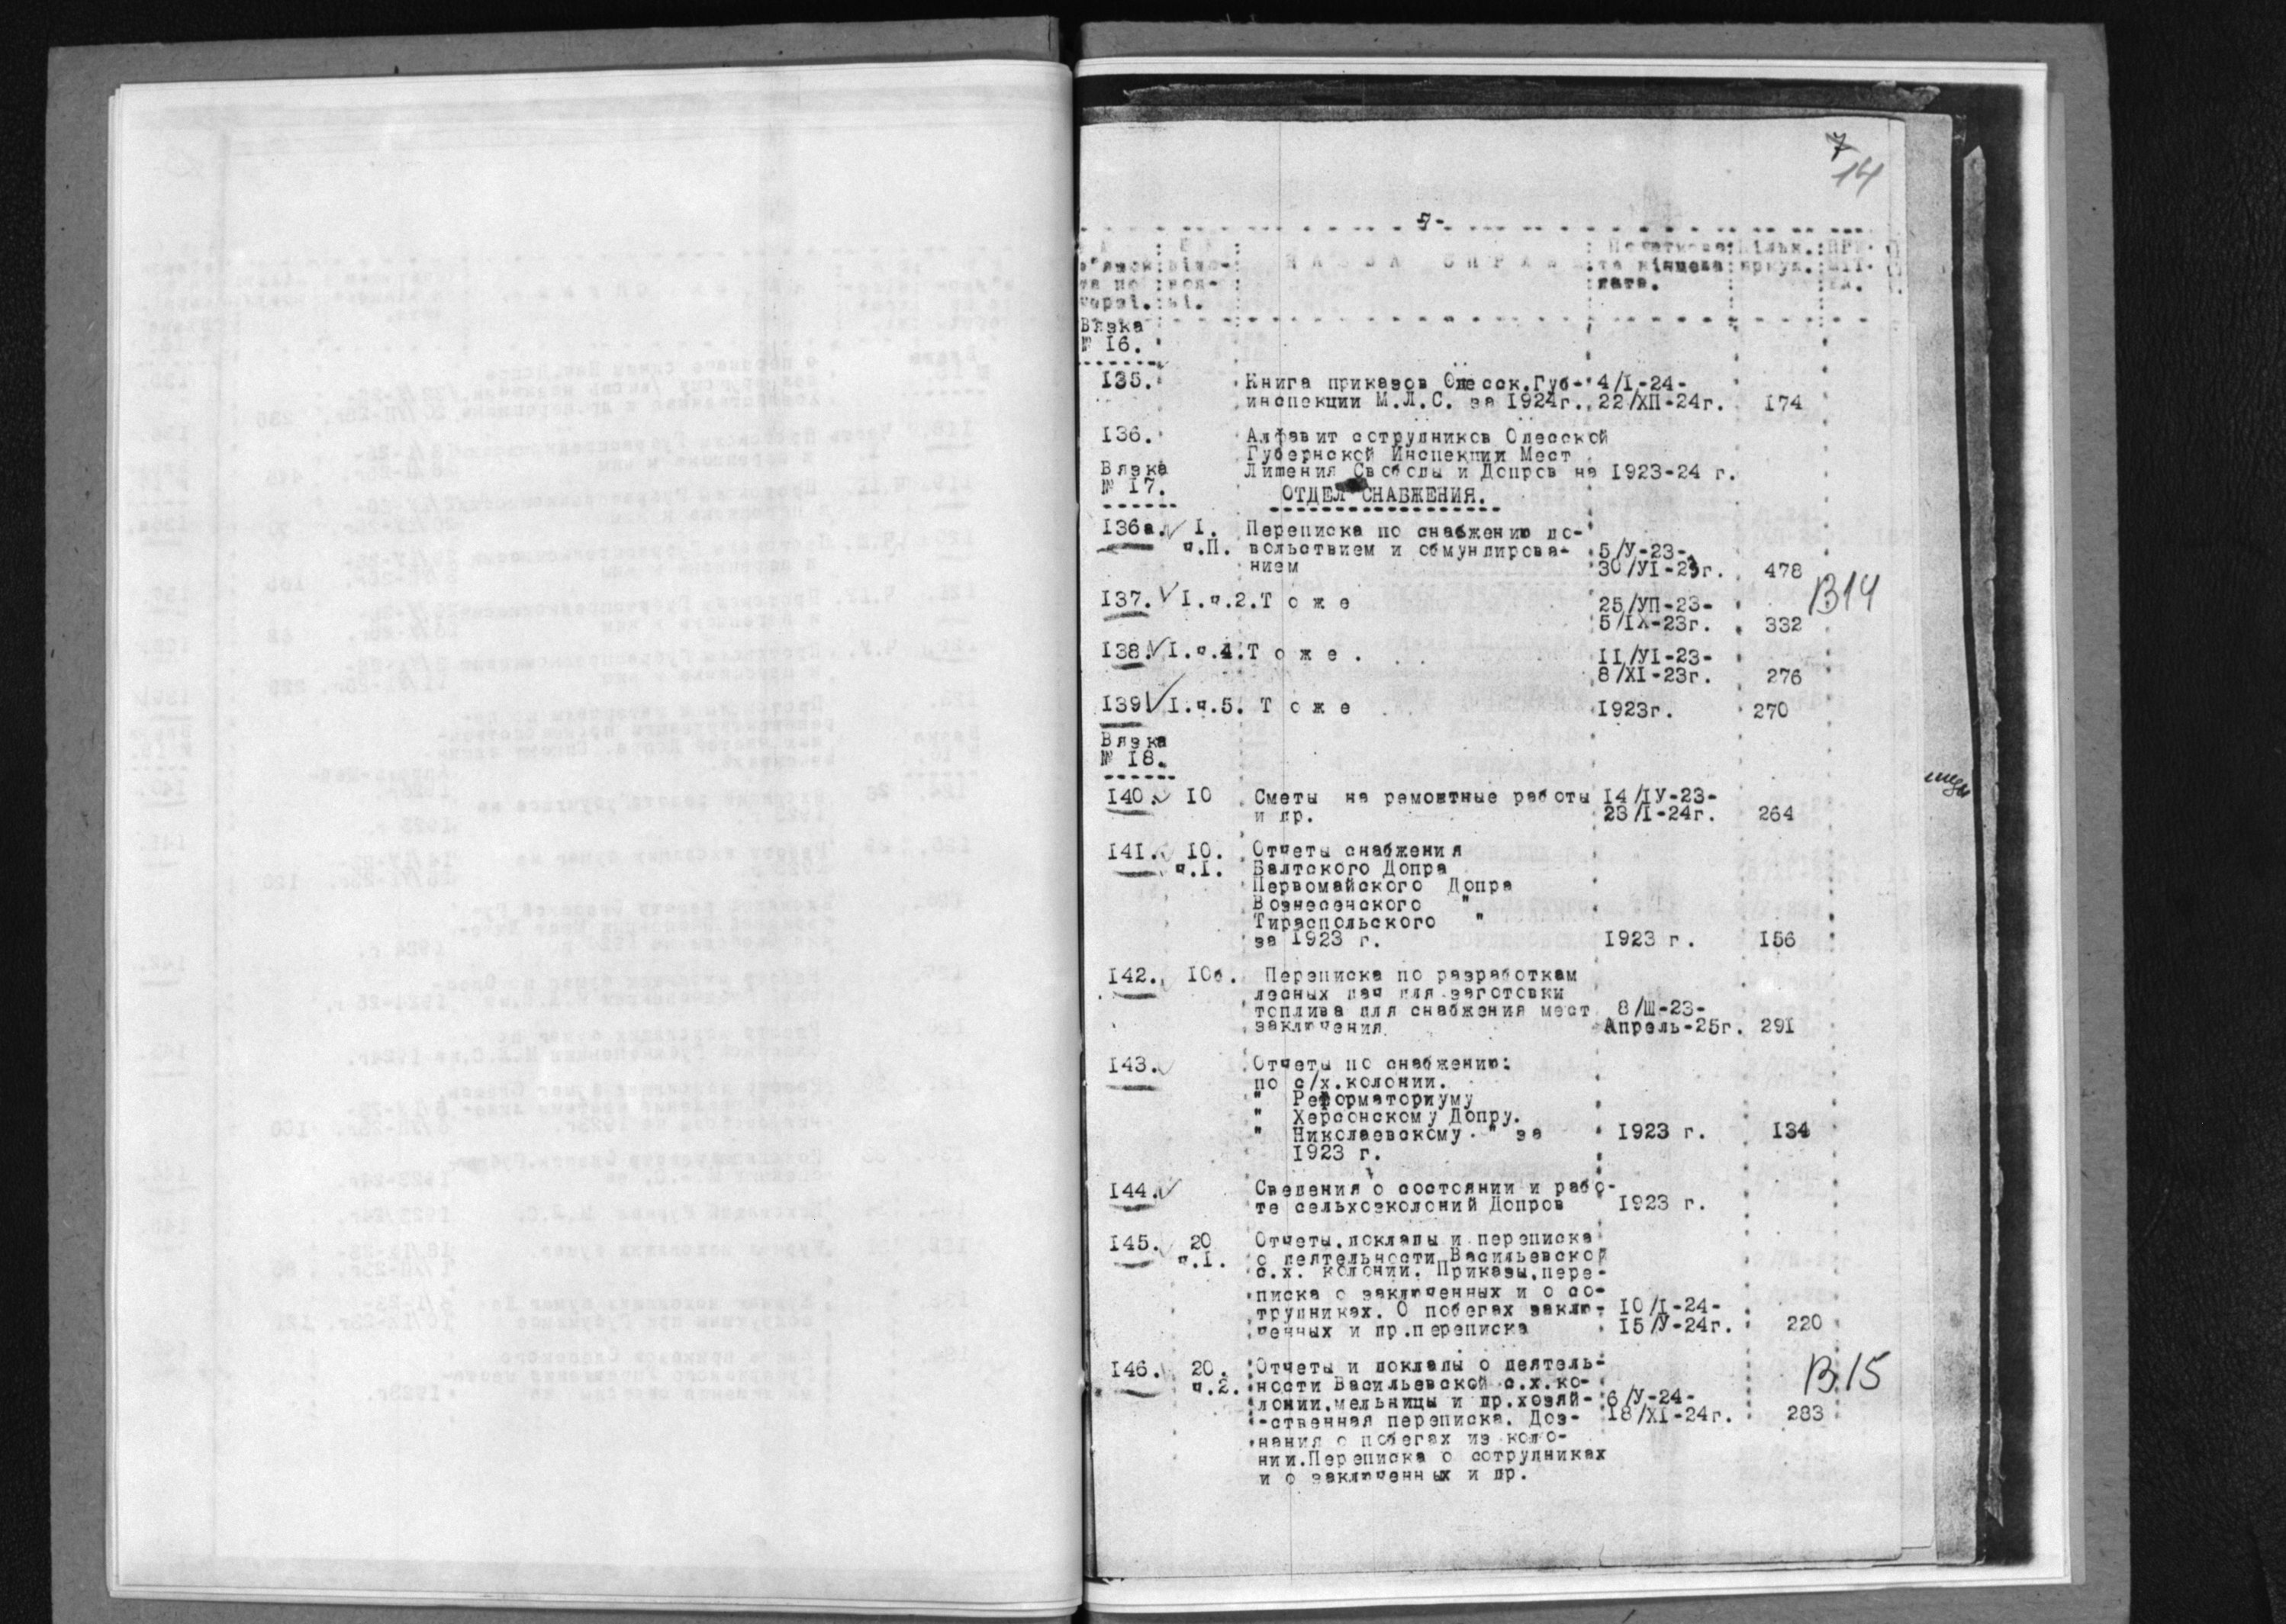 7
14
-7-
Початкова: кільк.:
Н А З В А С П Р А В : та кінцева аркуш.
та по : воя-: дата.
черзі. ві.
Вязка
№ 16.
135. Книга приказов Одесск.Губ- 4/I-24-
инспекции М.Л.С. за 1924г. 22/ХП-24г. 174
136. Алфавит сотрудников Одесской
Губернской Инспекции Мест
Вязка Лишения Свободы и Допров на 1923-24 г.
№ 17. ОТДЕЛ СНАБЖЕНИЯ.
136а. I. Переписка по снабжению до-
ч.П. вольствием и обмундирова- 5/У-23-
нием 30/УI-23г. 478
137. I.ч.2. Т о ж е 25/УП-23- В14
5/IX-23г. 332
138. I.ч.4. Т о ж е . 11/УI-23-
8/XI-23г. 276
139 I.ч.5. Т о ж е 1923г. 270
Вязка
№ 18.
140. 10 Сметы на ремонтные работы 14/IУ-23-
и др. 23/I-24г. 264
141. 10. Отчеты снабжения
ч.I. Балтского Допра
Первомайского Допра
Вознесенского "
Тираспольского "
за 1923 г. 1923 г. 156
142. 10б. Переписка по разработкам
лесных дач для заготовки
топлива для снабжения мест 8/Ш-23-
заключения Апрель-25г. 291
143. Отчеты по снабжению:
по с/х.колонии.
" Реформаториуму
" Херсонскому Допру.
" Николаевскому " за 1923 г. 134
1923 г.
144. Сведения о состоянии и рабо-
те сельхозколоний Допров 1923 г.
145. 20 Отчеты,доклады и переписка
ч.I. о деятельности Васильевской
с.х. колонии. Приказы,пере-
писка о заключенных и о со-
трудниках. О побегах заклю- 10/I-24-
ченных и др.переписка 15/У-24г. 220
146. 20. Отчеты и доклады о деятель-
ч.2. ности Васильевской с.х.ко- В15
лонии,мельницы и др.хозяй- 6/У-24-
-ственная переписка. Доз- 18/XI-24г. 283
нания о побегах из коло-
нии.Переписка о сотрудниках
и о заключенных и др.